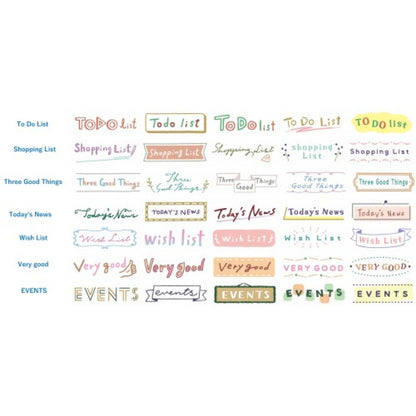 To Do List ToDo list Todo list ToDo list To Do List TO DO list
Shopping List Shopping List Shopping List Shopping List Shopping List SHOPPING LIST
Three Good Things Three Good Things Three Good Things Three Good Things THREE GOOD THINGS Three Good Things
Today's News Today's News TODAY'S NEWS Today's News Today's News Today's News
Wish List Wish List wish list Wish List WISH LIST Wish List
Very good Very good Very good Very good VERY GOOD VERY GOOD
EVENTS EVENTS events EVENTS EVENTS EVENTS